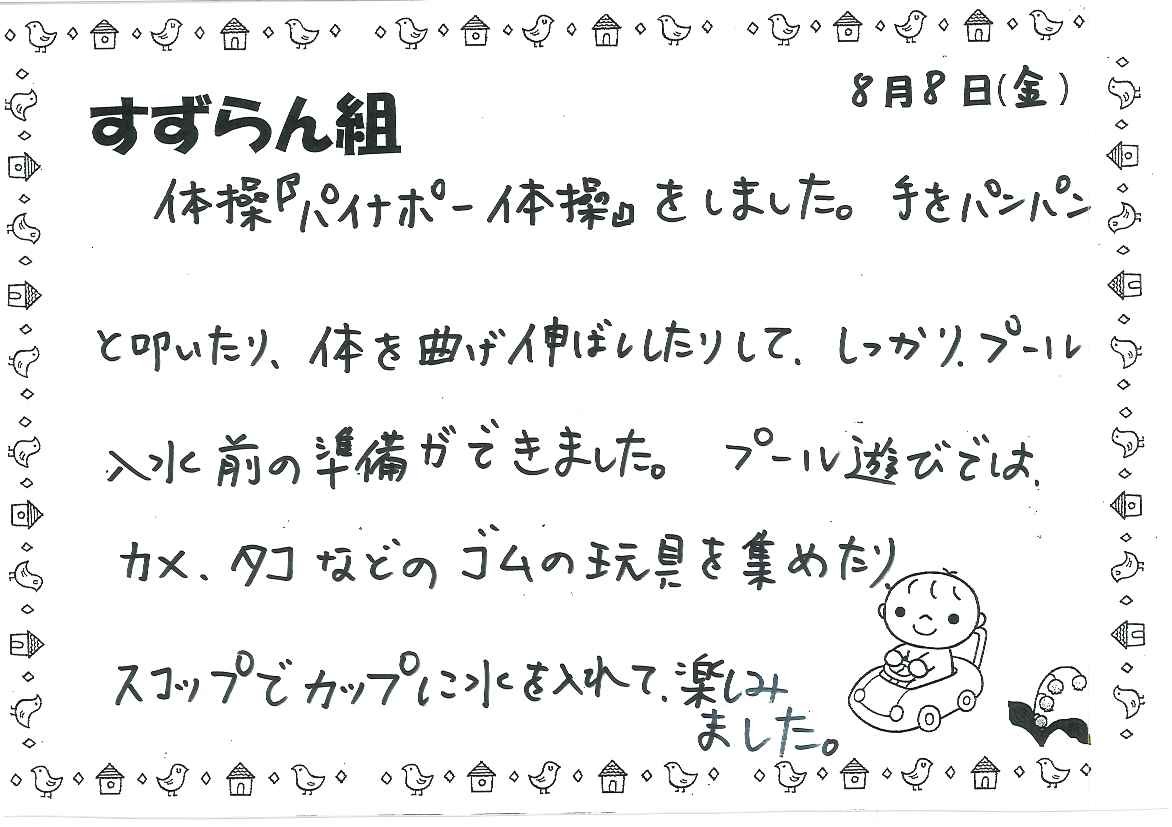 8月8日(金)
すずらん組
体操『パイナポー体操』をしました。手をパンパン
と叩いたり、体を曲げ伸ばししたりして、しっかり、プール
入水前の準備ができました。プール遊びでは、
カメ、タコなどのゴムの玩具を集めたり、
スコップでカップに水を入れて、楽しみ
ました。